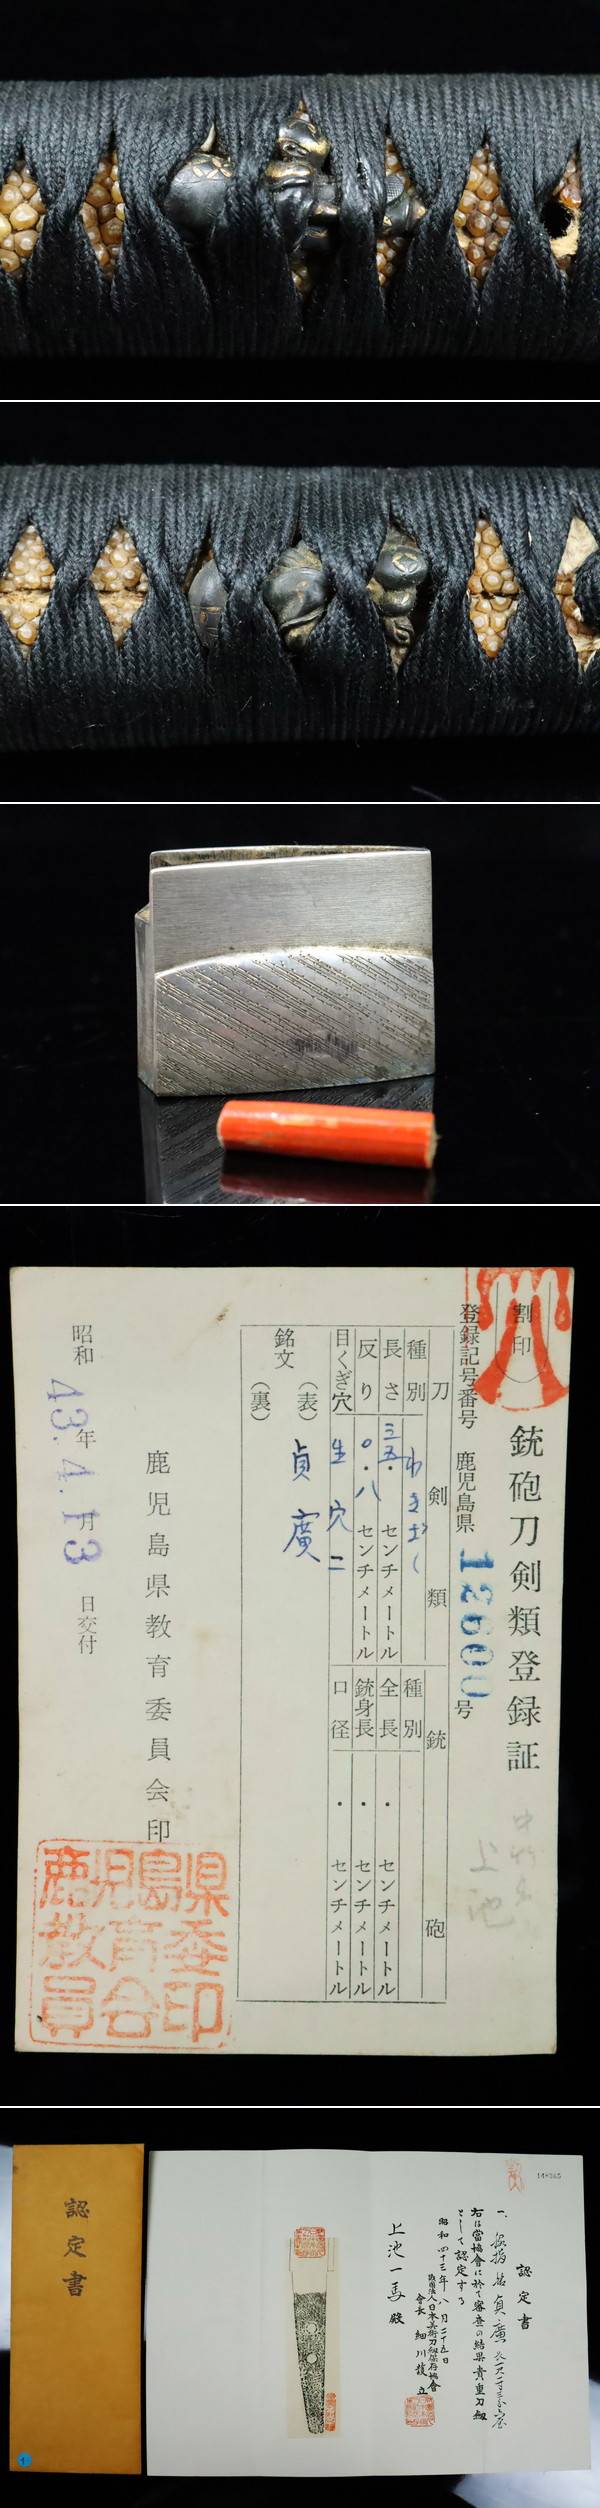 割印
銃砲刀剣類登録証
登録記号番号 鹿児島県 12600号
刀剣類
種別 わきざし
長さ 三五・ センチメートル
反り 〇・八 センチメートル
目くぎ穴 生穴二
銘文 (表) 貞廣
(裏)
銃砲
種別
全長 ・ センチメートル
銃身長 ・ センチメートル
口径 ・ センチメートル
鹿児島県教育委員会印
鹿児島県教育委員会印
昭和43年4月13日交付
上池
認定書
148365
認定書
一、脇指 銘 貞廣
右は當協會に於て審査の結果貴重刀剣
として認定する
昭和四十三年八月二十五日
財團法人日本美術刀剣保存協會
會長 細川護立
上池一馬殿
1